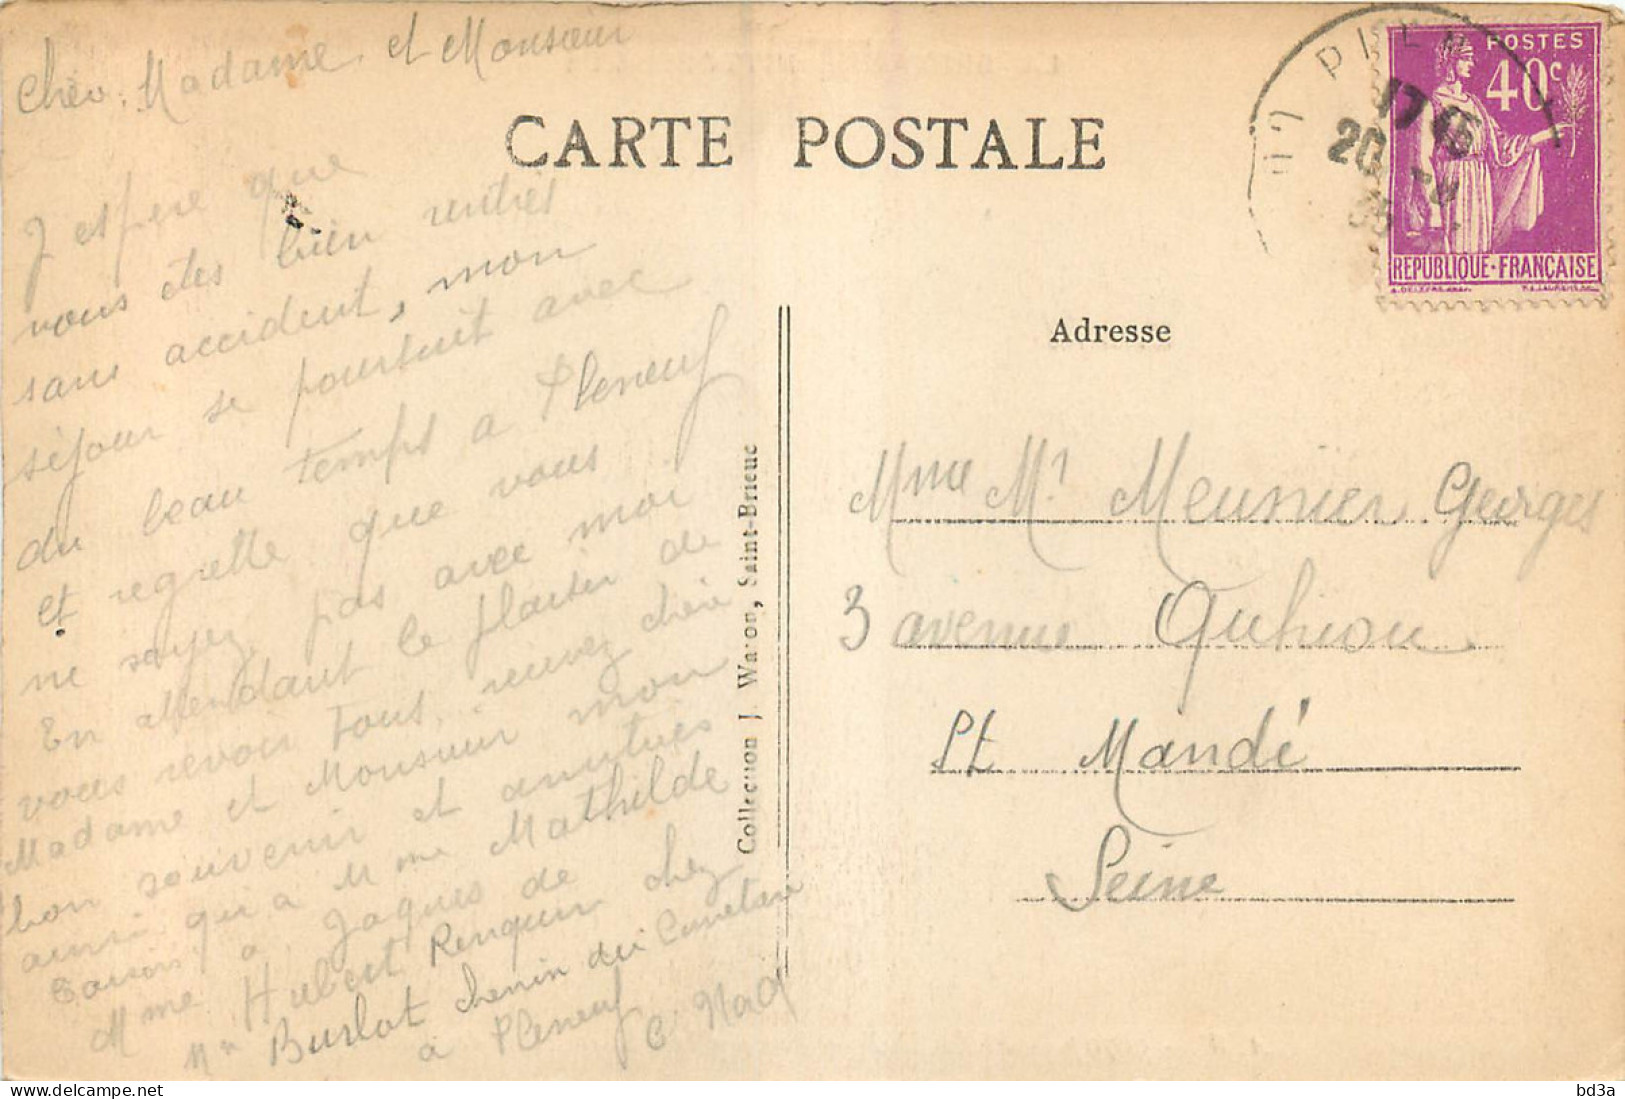 Cher. Madame et Monsieur
J espere que
vous etes bien rentrés
sans accident, mon
séjour se poursuit avec
du beau temps a Pleneuf
et regrette que vous
ne soyez pas avec moi
En attendant le plaisir de
vous revoir tous, recevez chère
Madame et Monsieur mon
bon souvenir et amitiés
ainsi qu'a Mme Mathilde
a Jaques de
Mme Hubert chez
Mr Burlot chemin du
a Pleneuf C. Nord
CARTE POSTALE
Collection J. Waron, Saint-Brieuc
POSTES
40c
REPUBLIQUE-FRANÇAISE
17
20
35
Adresse
Mme Mr Meunier Georges
3 avenue Quhiou
St Mandé
Seine
bd3a